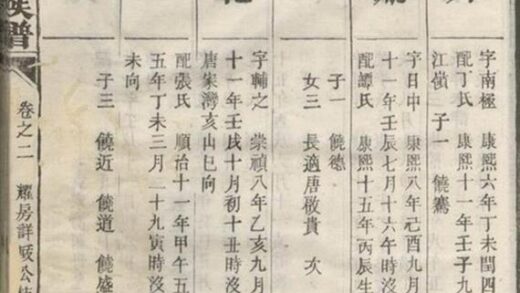 字南極 康熙六年丁未閏四
配丁氏 康熙十一年壬子九
江嶺 子一 饒鶱
字日中 康熙八年己酉九月
十一年壬辰七月十六午時沒
配譚氏 康熙十五年丙辰生
子一 饒德
女三 長適唐敬貴 次
字輔之 崇禎八年乙亥九月
十一年壬戌十月初十丑時沒
唐家灣亥山巳向
配張氏 順治十一年甲午五
五年丁未三月二十九寅時沒
未向
子三 饒近 饒道 饒盛
族譜
卷之二 耀房詳豉公